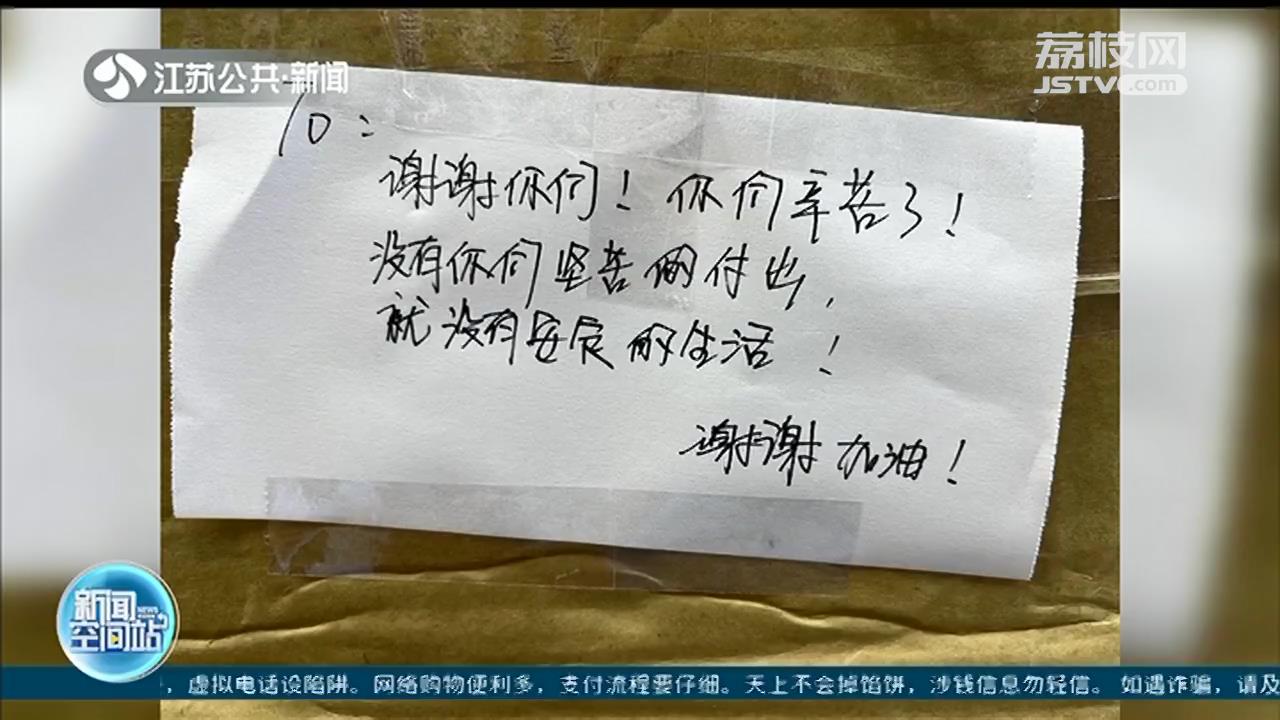 江苏公共·新闻
荔枝网
JSTV.com
To：
谢谢你们！你们辛苦了！
没有你们坚苦的付出，
就没有安定的生活！
谢谢加油！
新闻
NEWS
空间站
，虚拟电话设陷阱。网络购物便利多，支付流程要仔细。天上不会掉馅饼，涉钱信息勿轻信。 如遇诈骗，请及